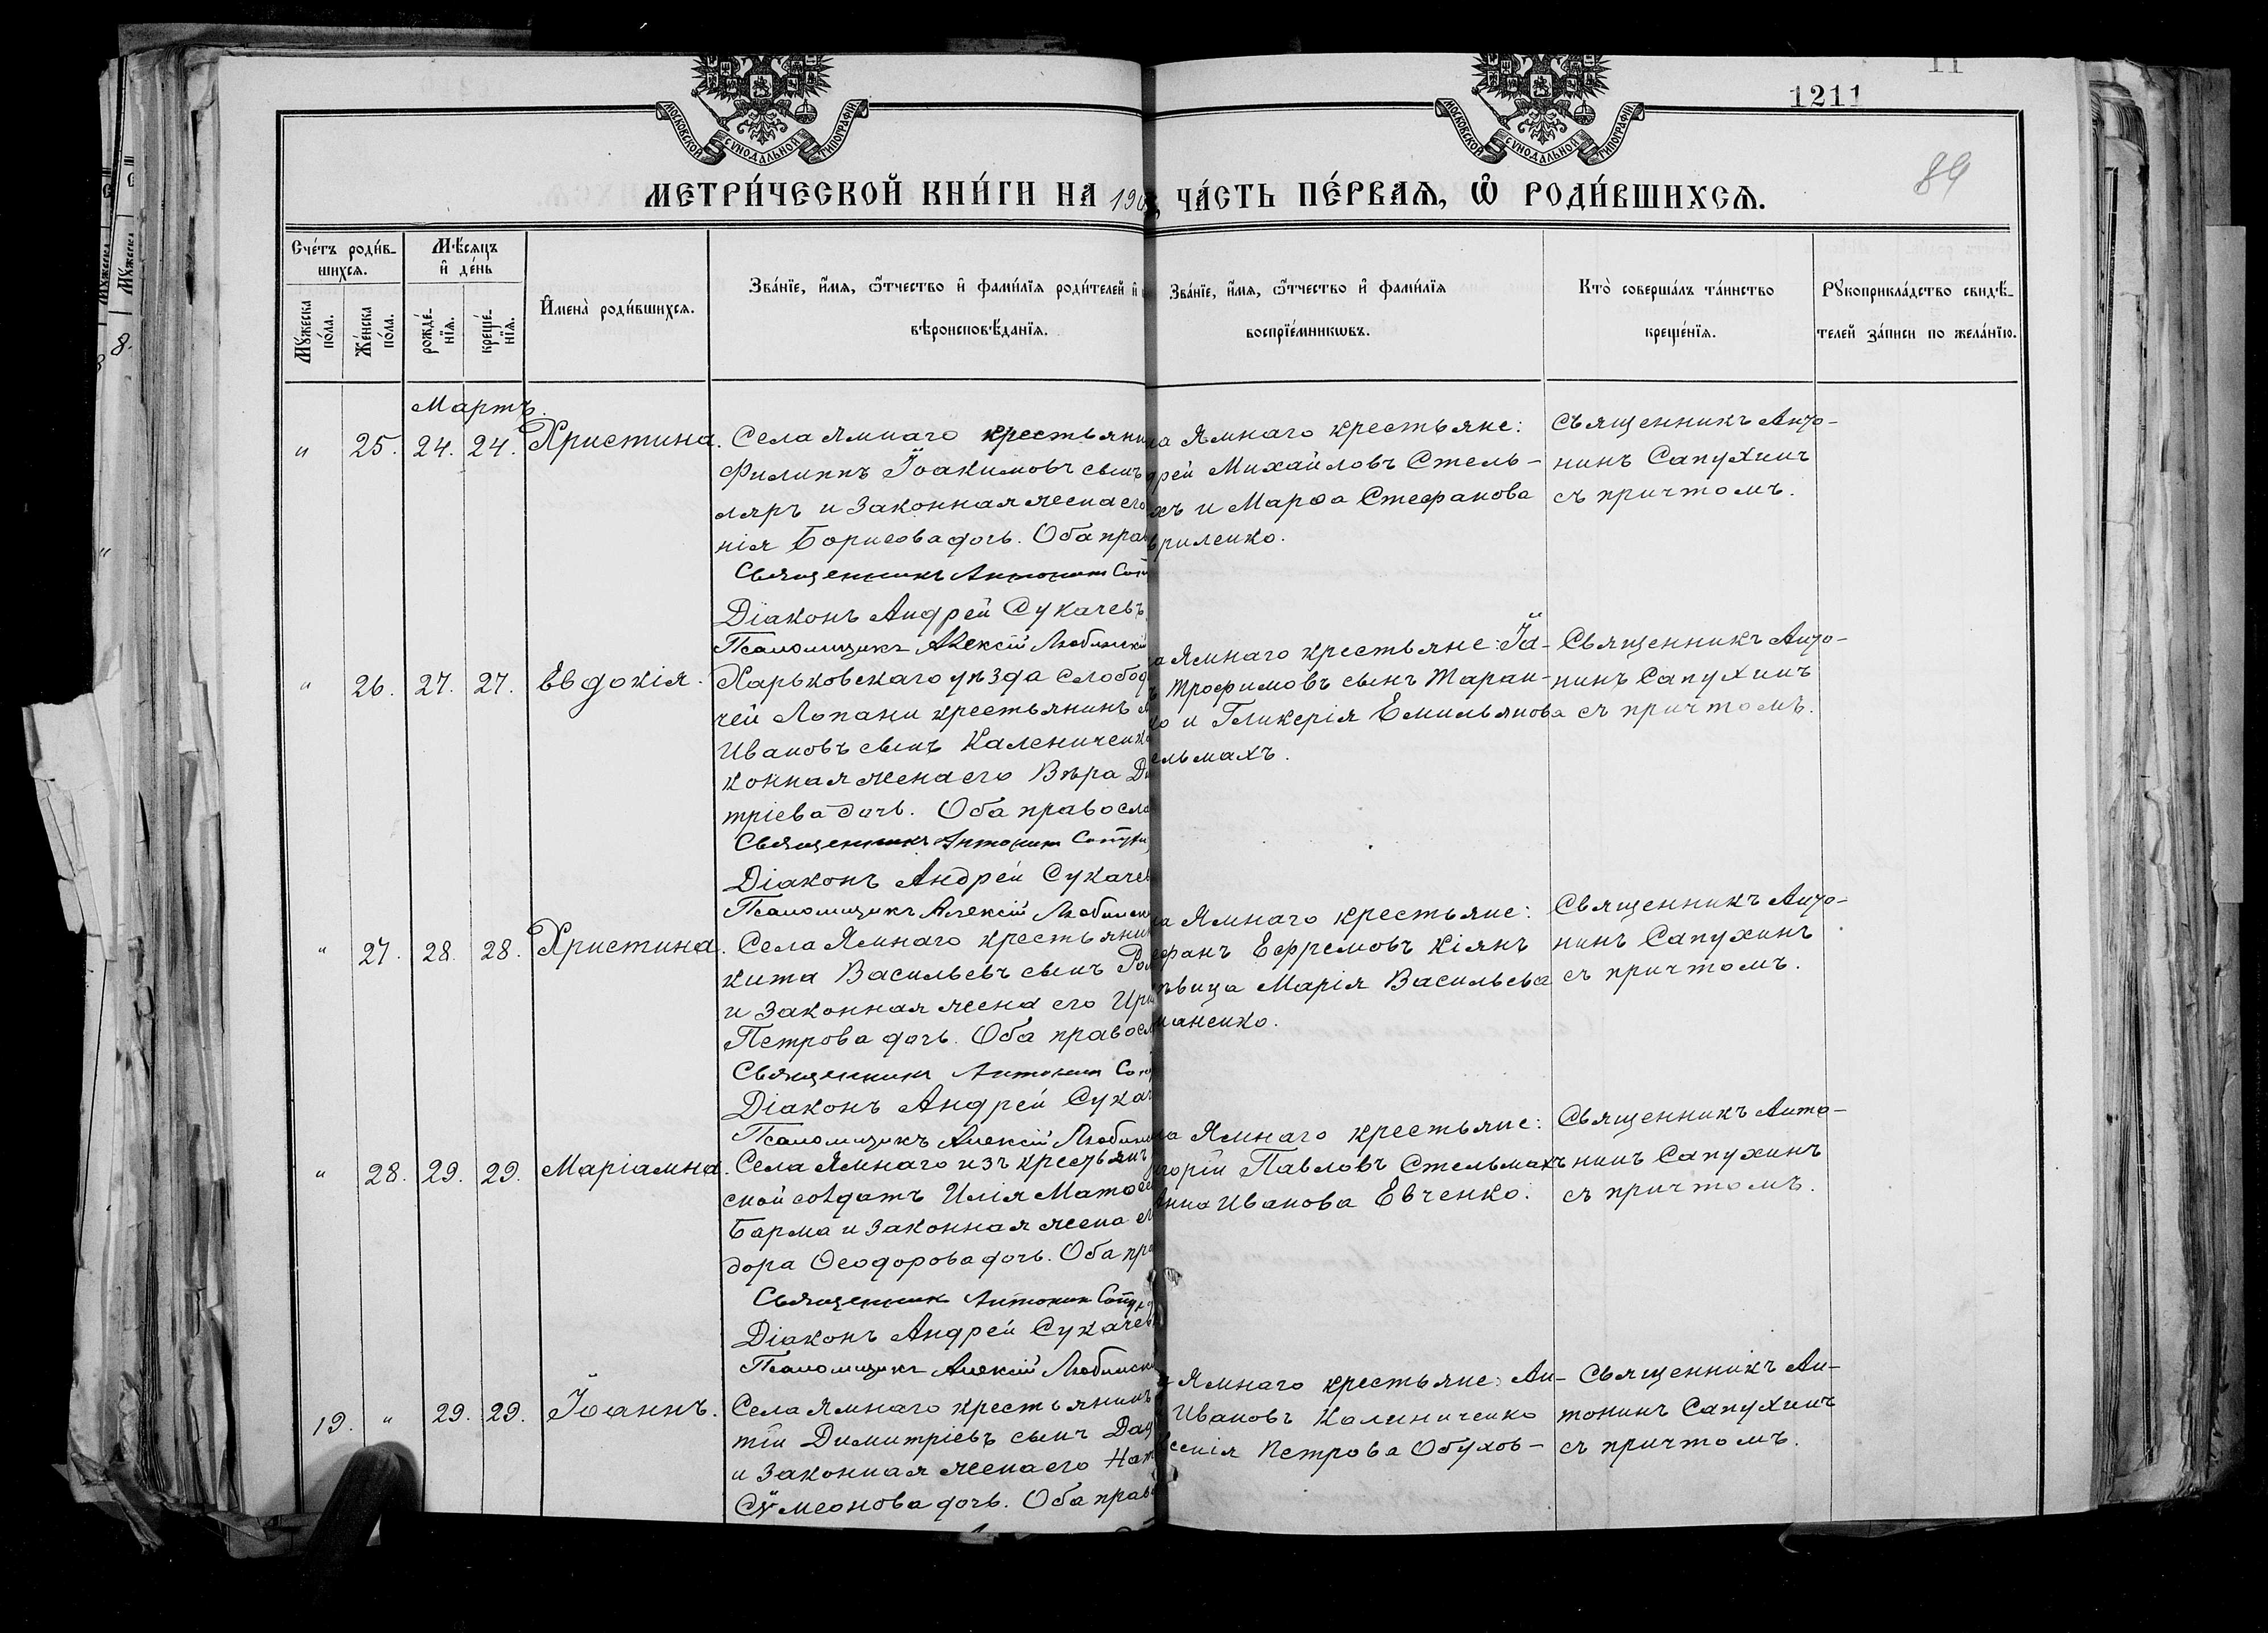 МОСКОВСКОЙ СѴНОДАЛЬНОЙ ТИПОГРАФІИ
МОСКОВСКОЙ СѴНОДАЛЬНОЙ ТИПОГРАФІИ
11
1211
89
МЕТРИ́ЧЕСКОЙ КНИ́ГИ НА 190 ЧА́СТЬ ПЕ́РВАЯ, Ѡ РОДИ́ВШИХСЯ.
Сче́тъ роди́в-
шихся.
Мѣ́сяцъ
и де́нь
Мꙋ́жеска
по́ла.
Же́нска
по́ла.
рожде́-
нїя.
креще́-
нїя.
Имена̀ роди́вшихся.
Зва́нїе, и́мя, ѻ҆́тчество и фами́лїя роди́телей и
вѣроисповѣ́данїя.
Зва́нїе, и́мя, ѻ҆́тчество и фами́лїя
воспрїе́мниковъ.
Кто̀ соверша́лъ та́инство
креще́нїя.
Рꙋкоприкла́дство свидѣ́-
телей за́писи по жела́нїю.
Мартъ.
" 25. 24. 24. Христина.
Села Ямнаго крестьяни
Филиппъ Іоакимовъ сынъ
ляръ и законная жена его
нія Борисова дочь. Оба прав
Священникъ Антонин Сап
Діаконъ Андрей Сукачевъ
Псаломщикъ Алексій Любинскій
а Ямнаго крестьяне:
дрей Михайловъ Стель-
хъ и Марѳа Стефанова
вриленко.
Священникъ Анто-
нинъ Сапухинъ
съ причтомъ.
" 26. 27. 27. Евдокія.
Харьковскаго уѣзда слобод
чей Лопани крестьянинъ
Ивановъ сынъ Калениченко
конная жена его Вѣра Ди
тріева дочь. Оба правосла
Священникъ Антонин Сапухи
Діаконъ Андрей Сукачев
Псаломщикъ Алексій Любинск
а Ямнаго крестьяне: Іа-
ъ Трофимовъ сынъ Таран-
ко и Гликерія Емильянова
ельмахъ.
Священникъ Анто-
нинъ Сапухинъ
съ причтомъ.
" 27. 28. 28. Христина.
Села Ямнаго крестьянин
кита Васильевъ сынъ Ром
и законная жена его Ири
Петрова дочь. Оба правосл
Священникъ Антонин Сап
Діаконъ Андрей Сукач
Псаломщикъ Алексій Любин
а Ямнаго крестьяне:
ефанъ Ефремовъ Кіянъ
ѣвица Марія Васильева
маненко.
Священникъ Анто-
нинъ Сапухинъ
съ причтомъ.
" 28. 29. 29. Маріамна.
Села Ямнаго изъ крестьянъ
ской солдатъ Илія Матѳее
Барма и законная жена
дора Ѳеодорова дочь. Оба пра
Священник Антонин Сапух
Діаконъ Андрей Сукачев
Псаломщикъ Алексій Любинск
а Ямнаго крестьяне:
горій Павловъ Стельмахъ
Анна Иванова Евченко.
Священникъ Анто-
нинъ Сапухинъ
съ причтомъ.
19. " 29. 29. Іоаннъ.
Села Ямнаго крестьянинъ
тій Димитріевъ сынъ
и законная жена его Нат
Сѵмеонова дочь. Оба прав
а Ямнаго крестьяне: Ан-
Ивановъ Калиниченко
сенія Петрова Обухов-
Священникъ Ан-
тонинъ Сапухинъ
съ причтомъ.